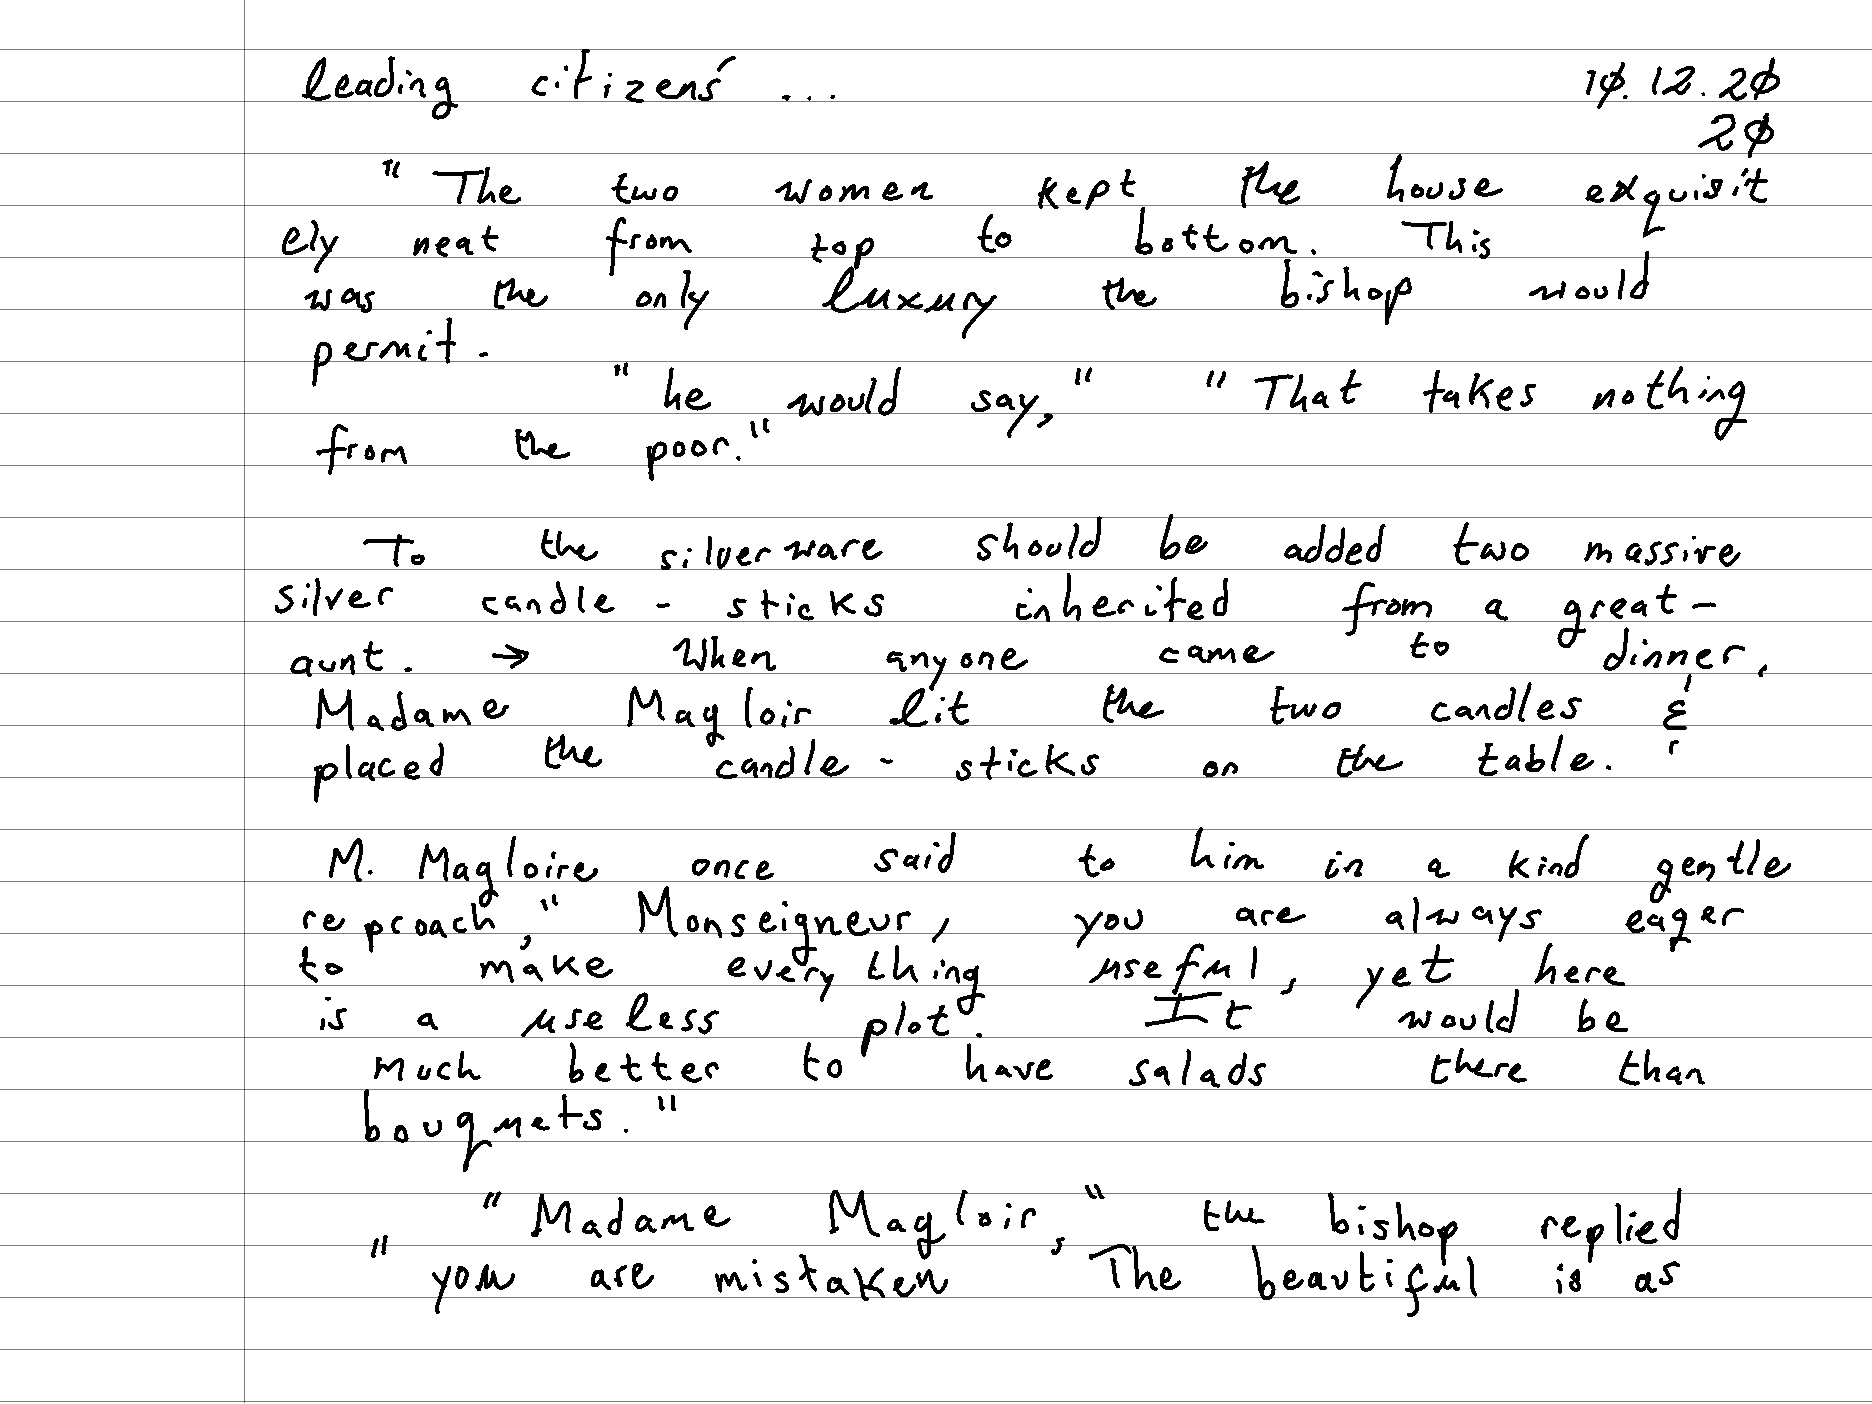 leading citizens' ... 10.12.20
20
" The two women kept the house exquisit
ely neat from top to bottom. This
was the only luxury the bishop would
permit.
" he would say," " That takes nothing
from the poor."
To the silverware should be added two massive
silver candle - sticks inherited from a great -
aunt. → When anyone came to dinner,
Madame Magloir lit the two candles &
placed the candle - sticks on the table.
M. Magloire once said to him in a kind gentle
reproach," Monseigneur, you are always eager
to make everything useful, yet here
is a useless plot. It would be
much better to have salads there than
bouquets."
" Madame Magloir," the bishop replied
" you are mistaken, The beautiful is as